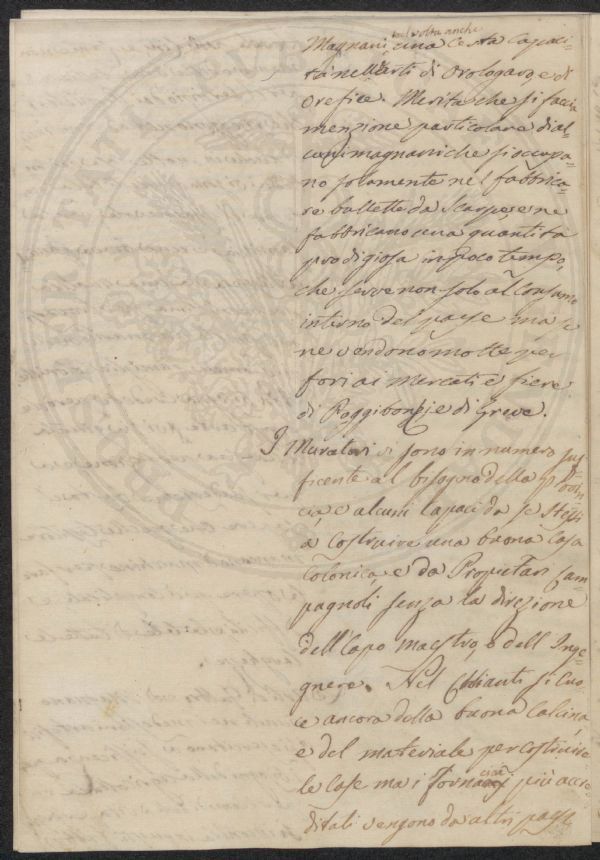 talvolta anche
Magnani, una certa capaci-
tà nell'arti di Orologiaro, e di
Orefice. Merita che si faccia
menzione particolare di al
cuni magnani che si occupa-
no solamente nel fabbrica-
re bullette da Scarpe e ne
fabbricano una quantità
prodigiosa in poco tempo,
che serve non solo al Consumo
interno del paese ma se
ne vendono molte per
fori ai Mercati e fiere
di Poggibonsi e di Greve.
I Muratori vi sono in numero suf
ficente al bisogno della Provin
cia e alcuni capaci da se stessi
a costruire una buona Casa
Colonica, e da Proprietari Cam-
pagnoli senza la direzione
dell'Capo maestro, o dell'Inge-
gnere. Nel Chianti si cuo-
ce ancora della buona Calcina
e del materiale per costruire
le Case ma i Fornaciai più accre
ditati vengono da altri paesi